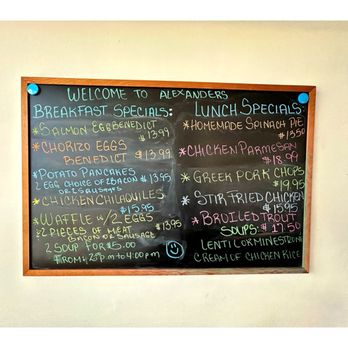 WELCOME TO ALEXANDERS
BREAKFAST SPECIALS:
*SALMON EGGBENEDICT
$13.99
*CHORIZO EGGS
BENEDICT $13.99
*POTATO PANCAKES
2 EGG CHOICE OF 2 BACON $13.95
OR 2 SAUSAGES
*CHICKEN CHILAQUILES
$15.95
*WAFFLE W/2 EGGS
2 PIECES OF MEAT $13.95
BACON OR SAUSAGE
2 SOUP FOR $5.00
FROM 2pm to 4:00pm
LUNCH SPECIALS:
*HOMEMADE SPINACH PIE
$13.50
*CHICKEN PARMESAN
$18.99
*GREEK PORK CHOPS
$19.95
*STIR FRIED CHICKEN
$15.95
*BROILED TROUT
SOUPS: $17.50
LENTIL OR MINESTRONE
CREAM OF CHICKEN RICE